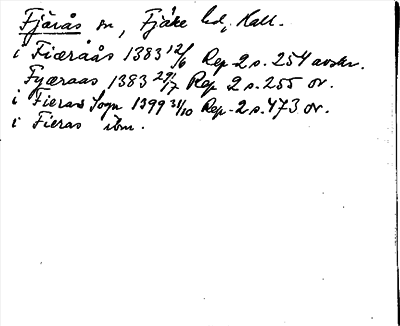 Fjärås sn, Fjäre hd, Hall.
i Fiæraås 1383 12/6 Rep 2 s. 254 avskr.
Fyæraas 1383 29/7 Rep 2 s. 255 or.
i Fieras sogn 1399 31/10 Rep. 2 s. 473 or.
i Fieras ibm.